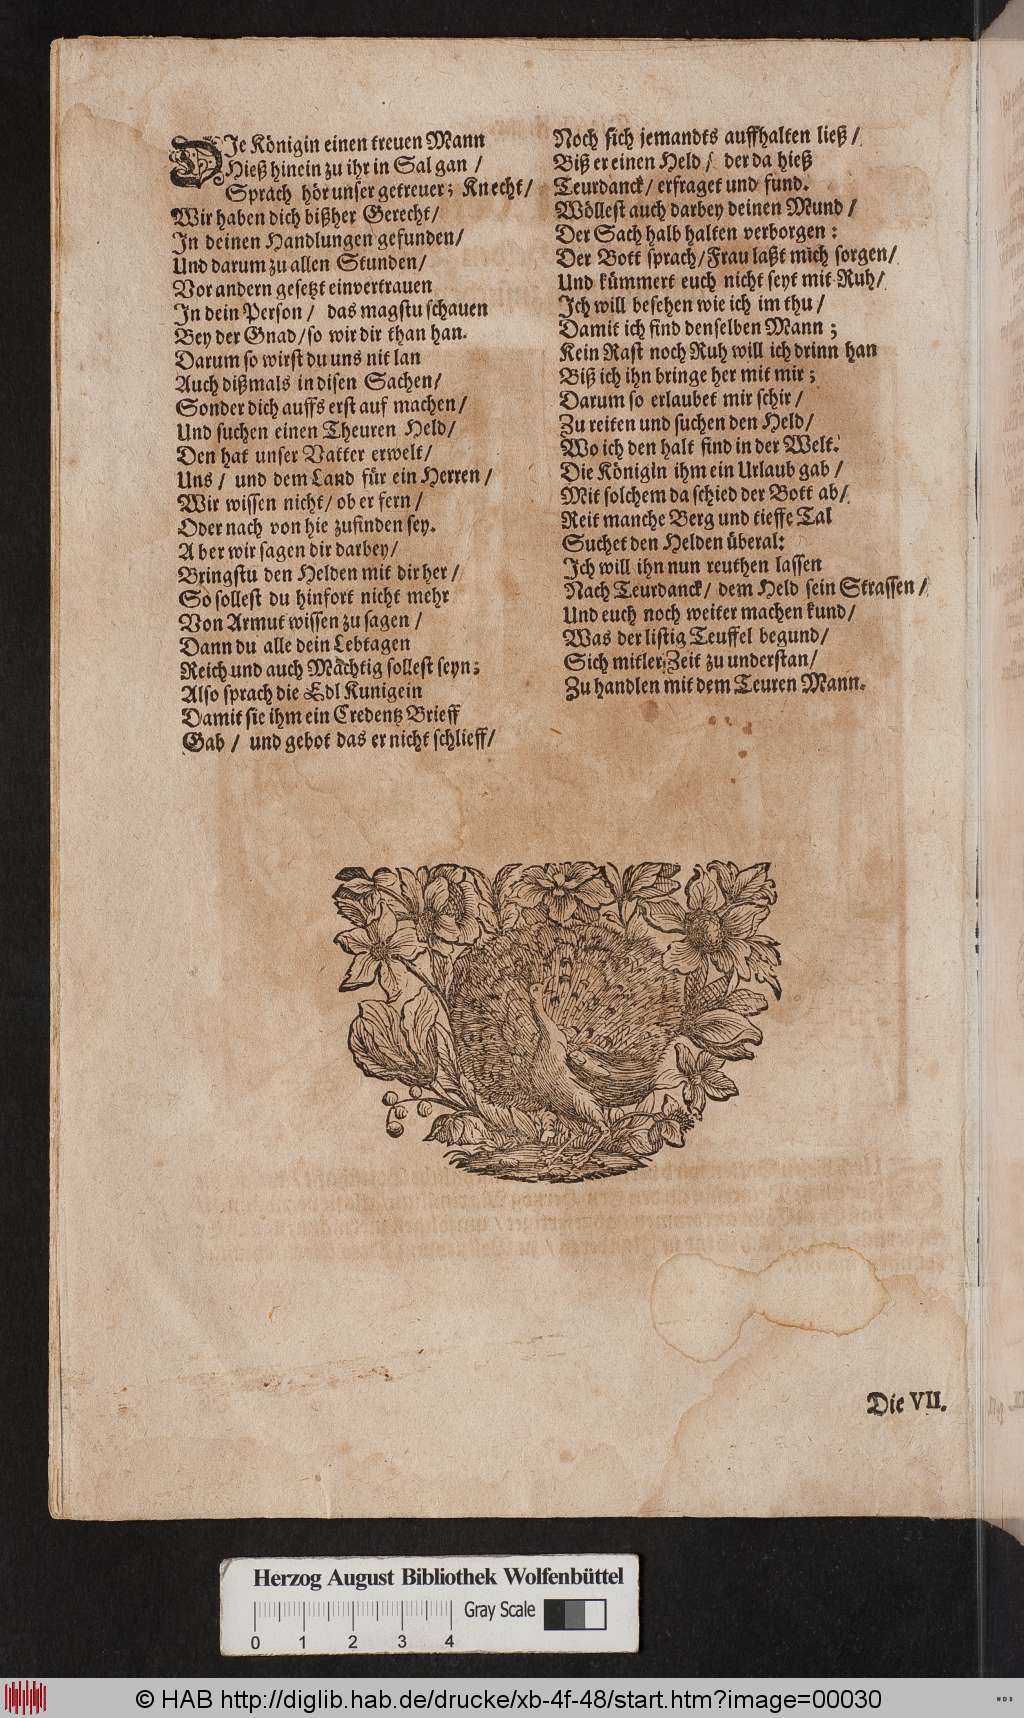 DJe Königin einen treuen Mann
Hieß hinein zu ihr in Sal gan /
Sprach hör unser getreuer; Knecht /
Wir haben dich bißher Gerecht /
Jn deinen Handlungen gefunden /
Und darum zu allen Stunden /
Vor andern gesetzt einvertrauen
Jn dein Person / das magstu schauen
Bey der Gnad / so wir dir than han.
Darum so wirst du uns nit lan
Auch dißmals in disen Sachen /
Sonder dich auffs erst auf machen /
Und suchen einen Theuren Held /
Den hat unser Vatter erwelt /
Uns / und dem Land für ein Herren /
Wir wissen nicht / ob er fern /
Oder nach von hie zufinden sey.
Aber wir sagen dir darbey /
Bringstu den Helden mit dir her /
So sollest du hinfort nicht mehr
Von Armut wissen zu sagen /
Dann du alle dein Lebtagen
Reich und auch Mächtig sollest seyn;
Also sprach die Edl Kunigein
Damit sie ihm ein Credentz Brieff
Gab / und gebot das er nicht schlieff /
Noch sich jemandts auffhalten ließ /
Biß er einen Held / der da hieß
Teurdanck / erfraget und fund.
Wöllest auch darbey deinen Mund /
Der Sach halb halten verborgen:
Der Bott sprach / Frau laßt mich sorgen /
Und kümmert euch nicht seyt mit Ruh /
Jch will besehen wie ich im thu /
Damit ich find denselben Mann;
Kein Rast noch Ruh will ich drinn han
Biß ich ihn bringe her mit mir;
Darum so erlaubet mir schir /
Zu reiten und suchen den Held /
Wo ich den halt find in der Welt.
Die Königin ihm ein Urlaub gab /
Mit solchem da schied der Bott ab /
Reit manche Berg und tieffe Tal
Suchet den Helden überal:
Jch will ihn nun reuthen lassen
Nach Teurdanck / dem Held sein Strassen /
Und euch noch weiter machen kund /
Was der listig Teuffel begund /
Sich mitler Zeit zu understan /
Zu handlen mit dem Teuren Mann.
Die VII.
Herzog August Bibliothek Wolfenbüttel
Gray Scale
0 1 2 3 4
© HAB http://diglib.hab.de/drucke/xb-4f-48/start.htm?image=00030